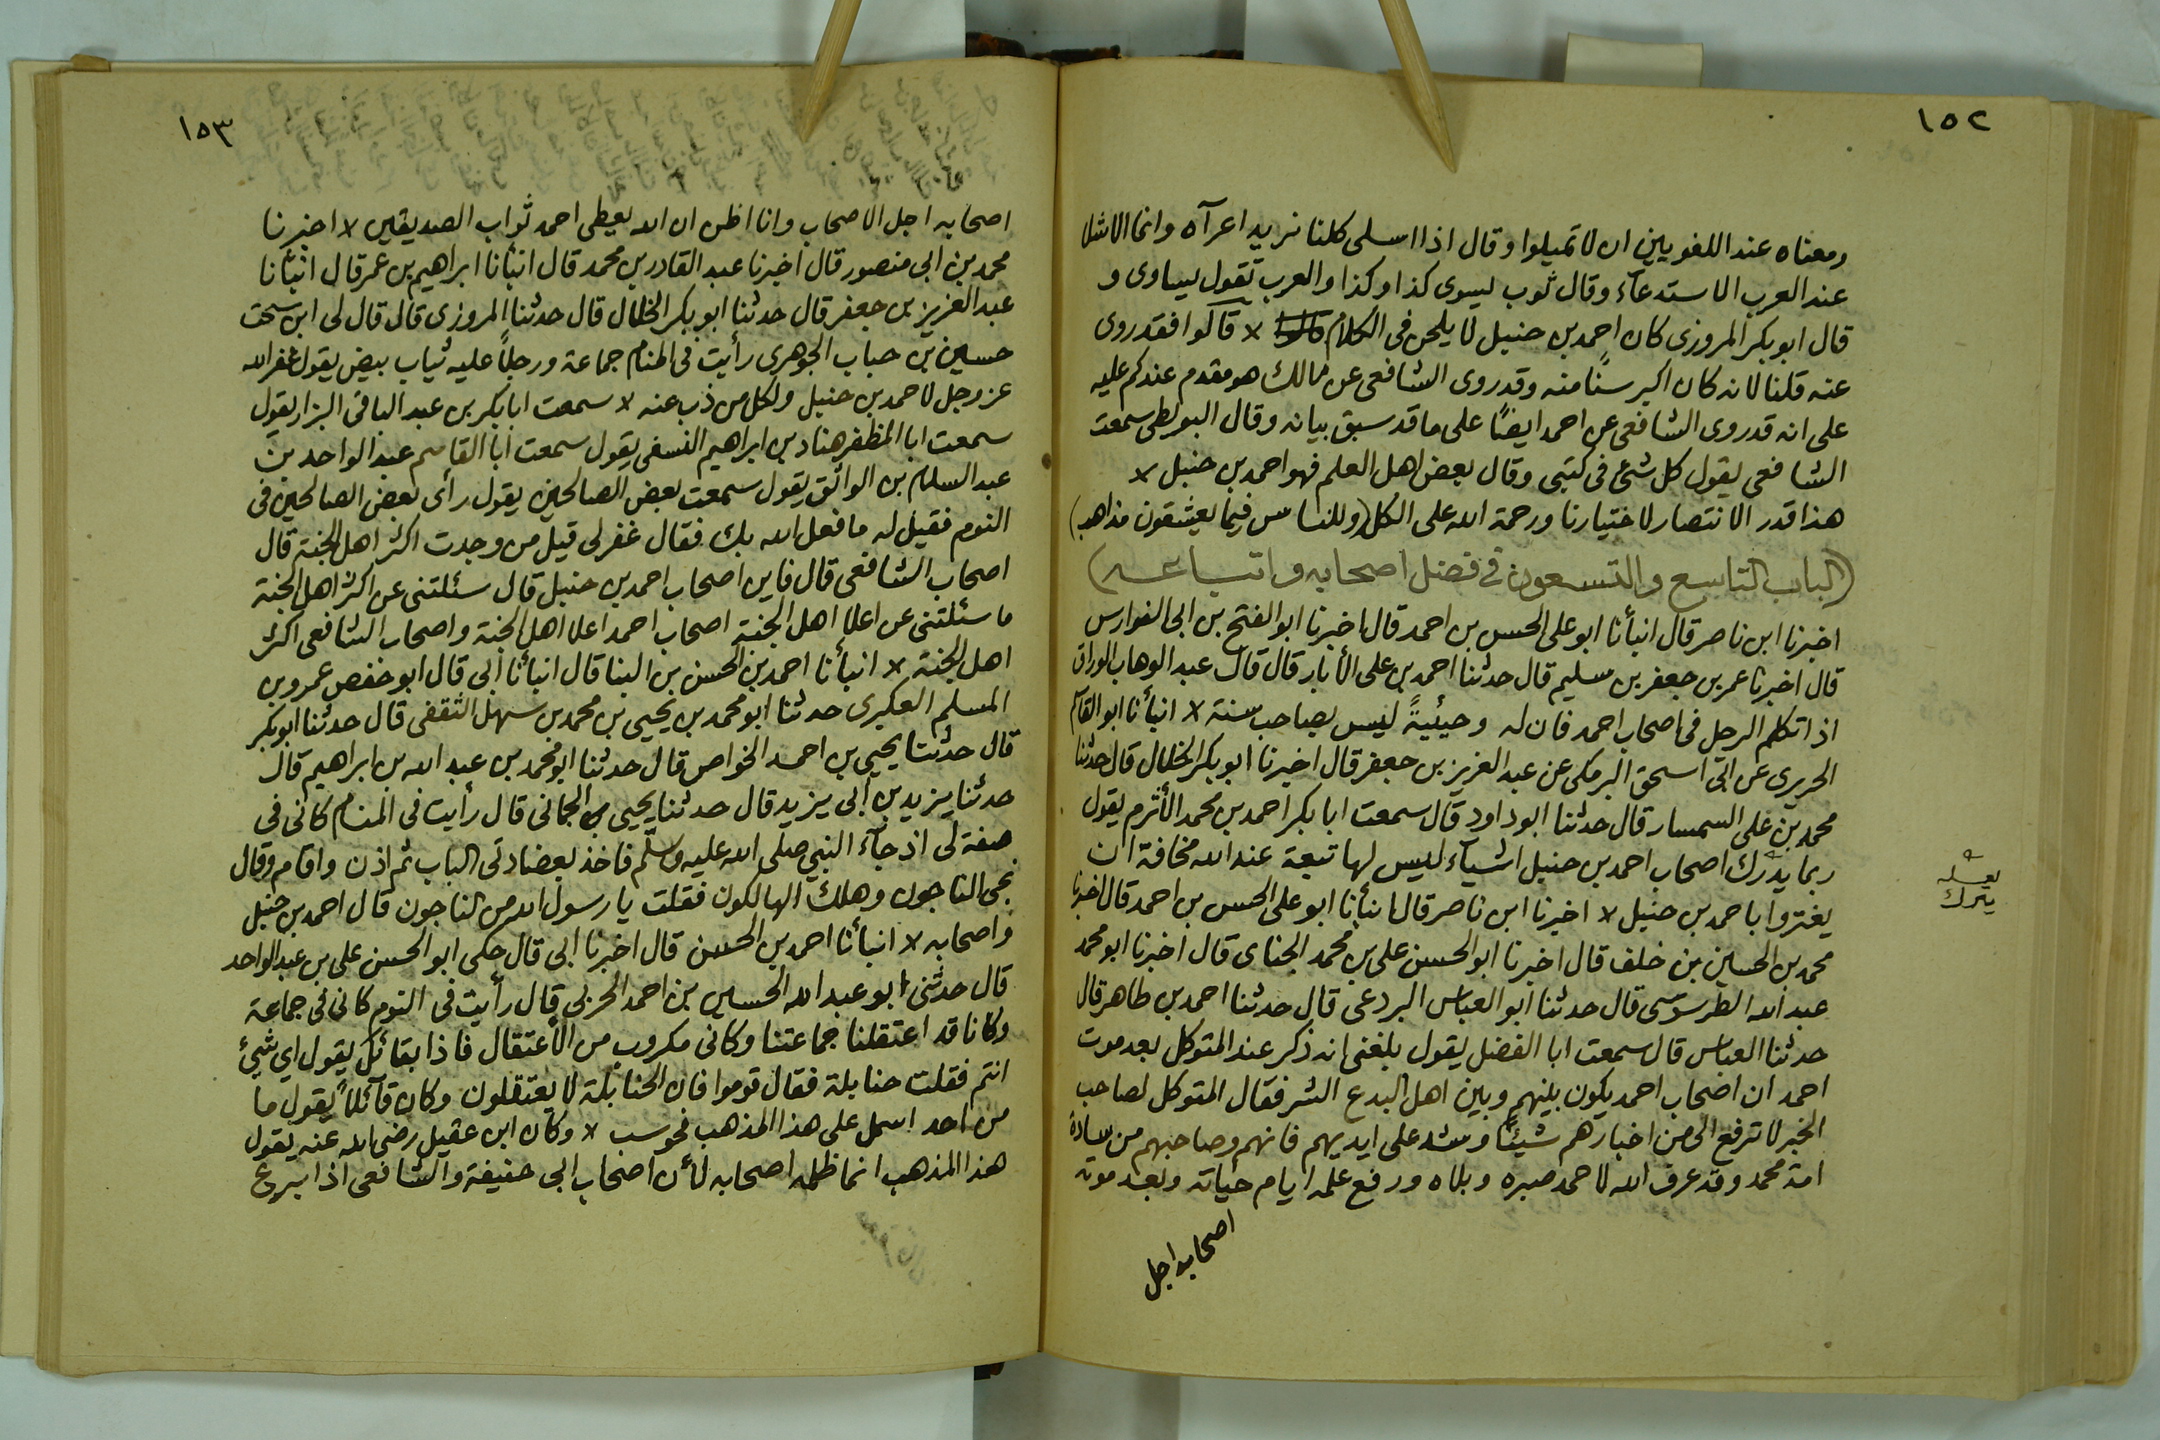 ١٥٢
ومعناه عند اللغويين ان لا تميلوا وقال اذا اسلى كلنا نريد اعرآه وانما الاشلا
عند العرب الاستدعآء وقال ثوب ليسوى كذا وكذا والعرب تقول يساوى و
قال ابو بكر المروزى كان احمد بن حنبل لا يلحن فى الكلام × قالوا فقد روى
عنه قلنا لانه كان اكبر سنًا منه وقد روى الشافعى عن مالك هو مقدم عندكم عليه
على انه قد روى الشافعى عن احمد ايضًا على ما قد سبق بيانه وقال البويطى سمعت
الشافعى يقول كل شئ فى كتبى وقال بعض اهل العلم فهو احمد بن حنبل ×
هذا قدر الانتصار لاختيارنا ورحمة الله على الكل (وللناس فيما يعشقون مذاهب)
(الباب التاسع والتسعون فى فضل اصحابه واتباعه)
اخبرنا ابن ناصر قال انبأنا ابو على الحسن بن احمد قال اخبرنا ابو الفتح بن ابى الفوارس
قال اخبرنا عمر بن جعفر بن سليم قال حدثنا احمد بن على الأبار قال قال عبد الوهاب الوراق
اذا تكلم الرجل فى اصحاب احمد فان له وحيئيةً ليس بصاحب سنة × انبأنا ابو القاسم
الحريرى عن ابى اسحق البرمكى عن عبد العزيز بن جعفر قال اخبرنا ابو بكر الخلال قال حدثنا
محمد بن على السمسار قال حدثنا ابو داود قال سمعت ابا بكر احمد بن محمد الأثرم يقول
ربما يدرك اصحاب احمد بن حنبل اشيآء ليس لها تبعة عند الله مخافة ان
لعله
يترك
يغتروا باحمد بن حنبل × اخبرنا ابن ناصر قال انبأنا ابو على الحسن بن احمد قال اخبرنا
محمد بن الحسين بن خلف قال اخبرنا ابو الحسن على بن محمد الجناى قال اخبرنا ابو محمد
عبد الله الطرسوسى قال حدثنا ابو العباس البردعى قال حدثنا احمد بن طاهر قال
حدثنا العباس قال سمعت ابا الفضل يقول بلغنى انه ذكر عند المتوكل بعد موت
احمد ان اصحاب احمد يكون بينهم وبين اهل البدع الشر فقال المتوكل لصاحب
الخبر لا ترفع الى من اخبارهم شيئًا وشد على ايديهم فانهم وصاحبهم من سادة
امة محمد وقد عرف الله لاحمد صبره وبلاه ورفع علمه ايام حياته وبعد موته
اصحابه اجل
١٥٣
اصحابه اجل الاصحاب وانا اظن ان الله يعطى احمد ثواب الصديقين × اخبرنا
محمد بن ابى منصور قال اخبرنا عبد القادر بن محمد قال انبأنا ابراهيم بن عمر قال انبأنا
عبد العزيز بن جعفر قال حدثنا ابو بكر الخلال قال حدثنا المروزى قال قال لى ابن سحت
حسين بن حباب الجوهرى رأيت فى المنام جماعة ورجلًا عليه ثياب بيض يقول غفر الله
عز وجل لاحمد بن حنبل ولكل من ذب عنه × سمعت ابا بكر بن عبد الباقى البزار يقول
سمعت ابا المظفر هناد بن ابراهيم النسفى يقول سمعت ابا القاسم عبد الواحد بن
عبد السلام بن الواثق يقول سمعت بعض الصالحين يقول رأى بعض الصالحين فى
النوم فقيل له ما فعل الله بك فقال غفر لى قيل من وجدت اكثر اهل الجنة قال
اصحاب الشافعى قال فاين اصحاب احمد بن حنبل قال سئلتنى عن اكثر اهل الجنة
ما سئلتنى عن اعلا اهل الجنة اصحاب احمد اعلا اهل الجنة واصحاب الشافعى اكثر
اهل الجنة × انبأنا احمد بن الحسن بن البنا قال انبأنا ابى قال ابو حفص عمرو بن
المسلم العكبرى حدثنا ابو محمد بن يحيى بن محمد بن سهل الثقفى قال حدثنا ابو بكر
قال حدثنا يحيى بن احمد الخواص قال حدثنا ابو محمد بن عبد الله بن ابراهيم قال
حدثنا يزيد بن ابى يزيد قال حدثنا يحيى بن الجمانى قال رأيت فى المنام كانى فى
صفة لى اذ جآء النبى صلى الله عليه وسلم فاخذ بعضادتى الباب ثم اذن واقام وقال
نجى الناجون وهلك الهالكون فقلت يا رسول الله من الناجون قال احمد بن حنبل
واصحابه × انبأنا احمد بن الحسن قال اخبرنا ابى قال حكى ابو الحسن على بن عبد الواحد
قال حدثنى ابو عبد الله الحسين بن احمد الحربى قال رأيت فى النوم كانى فى جماعة
وكانا قد اعتقلنا جماعتنا وكانى مكروب من الأعتقال فاذا بقائل يقول اي شئ
انتم فقلت حنابلة فقال قوموا فان الحنابلة لا يعتقلون وكان قآئلاً يقول ما
من احد اسمل على هذا المذهب فحوسب × وكان ابن عقيل رضى الله عنه يقول
هذا المذهب انما ظلمه اصحابه لأن اصحاب ابى حنيفة والشافعى اذا برع